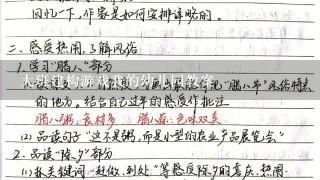 回忆一下，作家是如何安排详略的。
二、感受热闹，了解风俗
1.学习“腊八”部分
大班建构游戏我的幼儿园教案
的地方。结合自己过年的感受作批注
腊八粥：食材多 腊八蒜：色味双美
(2) 品读句子“这不是粥，而是小型的农业产品展览会”
2.品读“除夕”部分
(1) 抓关键词“赶做、到处”等感受除夕的喜庆、热闹